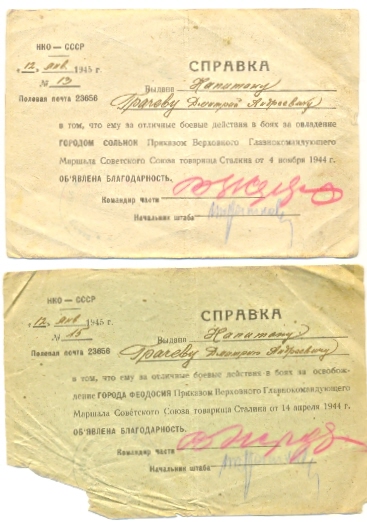 НКО — СССР
СПРАВКА
„12„ янв 1945 г.
№ 13
Выдана Капитану
Полевая почта 23656
Грачеву Дмитрий Андреевичу
в том, что ему за отличные боевые действия в боях за овладение
ГОРОДОМ СОЛЬНОК Приказом Верховного Главнокомандующего
Маршала Советского Союза товарища Сталина от 4 ноября 1944 г.
ОБ'ЯВЛЕНА БЛАГОДАРНОСТЬ.
Командир части
Начальник штаба
НКО — СССР
СПРАВКА
„12„ янв 1945 г.
№ 15
Выдана Капитану
Полевая почта 23656
Грачеву Дмитрию Андреевичу
в том, что ему за отличные боевые действия в боях за освобож-
дение ГОРОДА ФЕОДОСИЯ Приказом Верховного Главнокомандующего
Маршала Советского Союза товарища Сталина от 14 апреля 1944 г.
ОБ'ЯВЛЕНА БЛАГОДАРНОСТЬ.
Командир части
Начальник штаба